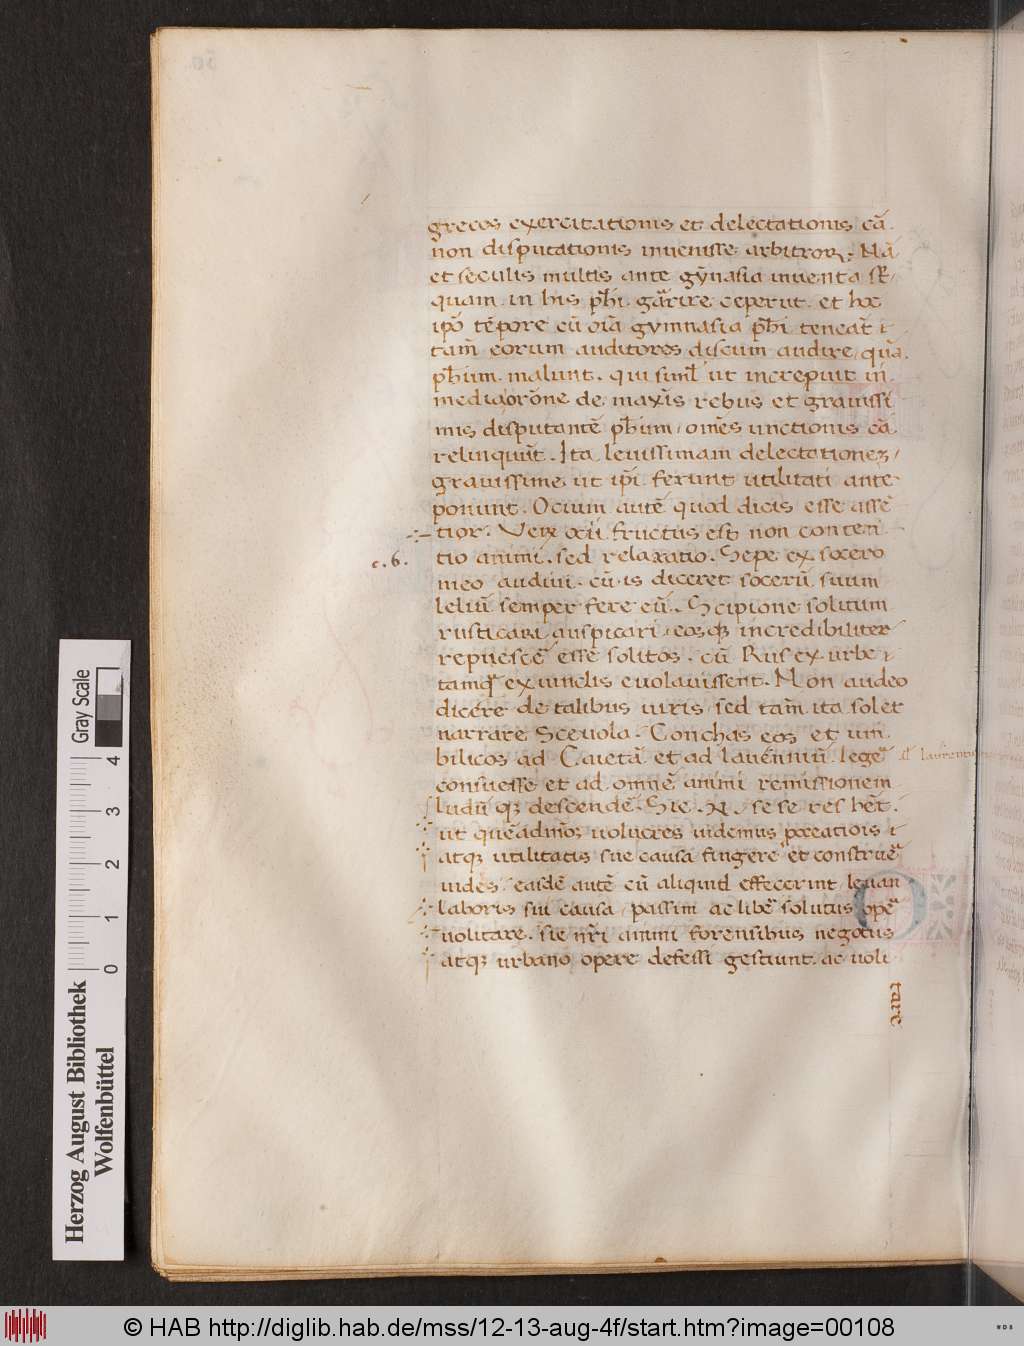 grecos exercitationis et delectationis cā.
non disputationis inuenisse arbitror. Nā
et seculis multis ante gȳnasia inuenta sꝉ,
quam in his phī. gārrire ceperūt. et hoc
ipō tēpore cū oīa gymnasia phī teneāt
tam̄ eorum auditores discum audire, quā.
phīum malunt. qui siml̄ ut increpuit in
media orōne de maxīs rebus et grauissi
mis disputantē phīum, omēs unctionis cā
relinquūt. Ita leuissimam delectationem,
grauissime ut ipī ferunt utilitati ante
ponunt. Ocium autē quod dicis esse assē
tior. Veꝝ ocii fructus est non conten
c. 6.
tio animi. sed relaxatio. Sepe ex socero
meo audiui. cū is diceret socerū suum
leliū semper fere cū. Scipione solitum
rusticari auspicari, eosqꝫ incredibiliter
repuescē essē solitos. cū Rus ex urbe
tamqͣ ex uinclis euolauissent. Non audeo
dicere de talibus uiris, sed tam̄ ita solet
narrare Sceuola. Conchas eos et um
bilicos ad Caietā et ad lauenniū legē
al laurentū
consuesse et ad omnē animi remissionem
ludū qꝫ descendē. Sic .N. se se res hēt.
ut quēadmoꝫ uolucres uidemus pcreatiōis
atqꝫ utilitatis sue causa fingere et construē
uides. easdē autē cū aliquid effecerint, leuan
laboris sui causa, passim ac libē solutus opē
uolitare. sic nr̄i animi forensibus negotiis
atqꝫ urbano opere defessi gestiunt. ac uoli
tare
Herzog August Bibliothek
Wolfenbüttel
0 1 2 3 4
Gray Scale
© HAB http://diglib.hab.de/mss/12-13-aug-4f/start.htm?image=00108